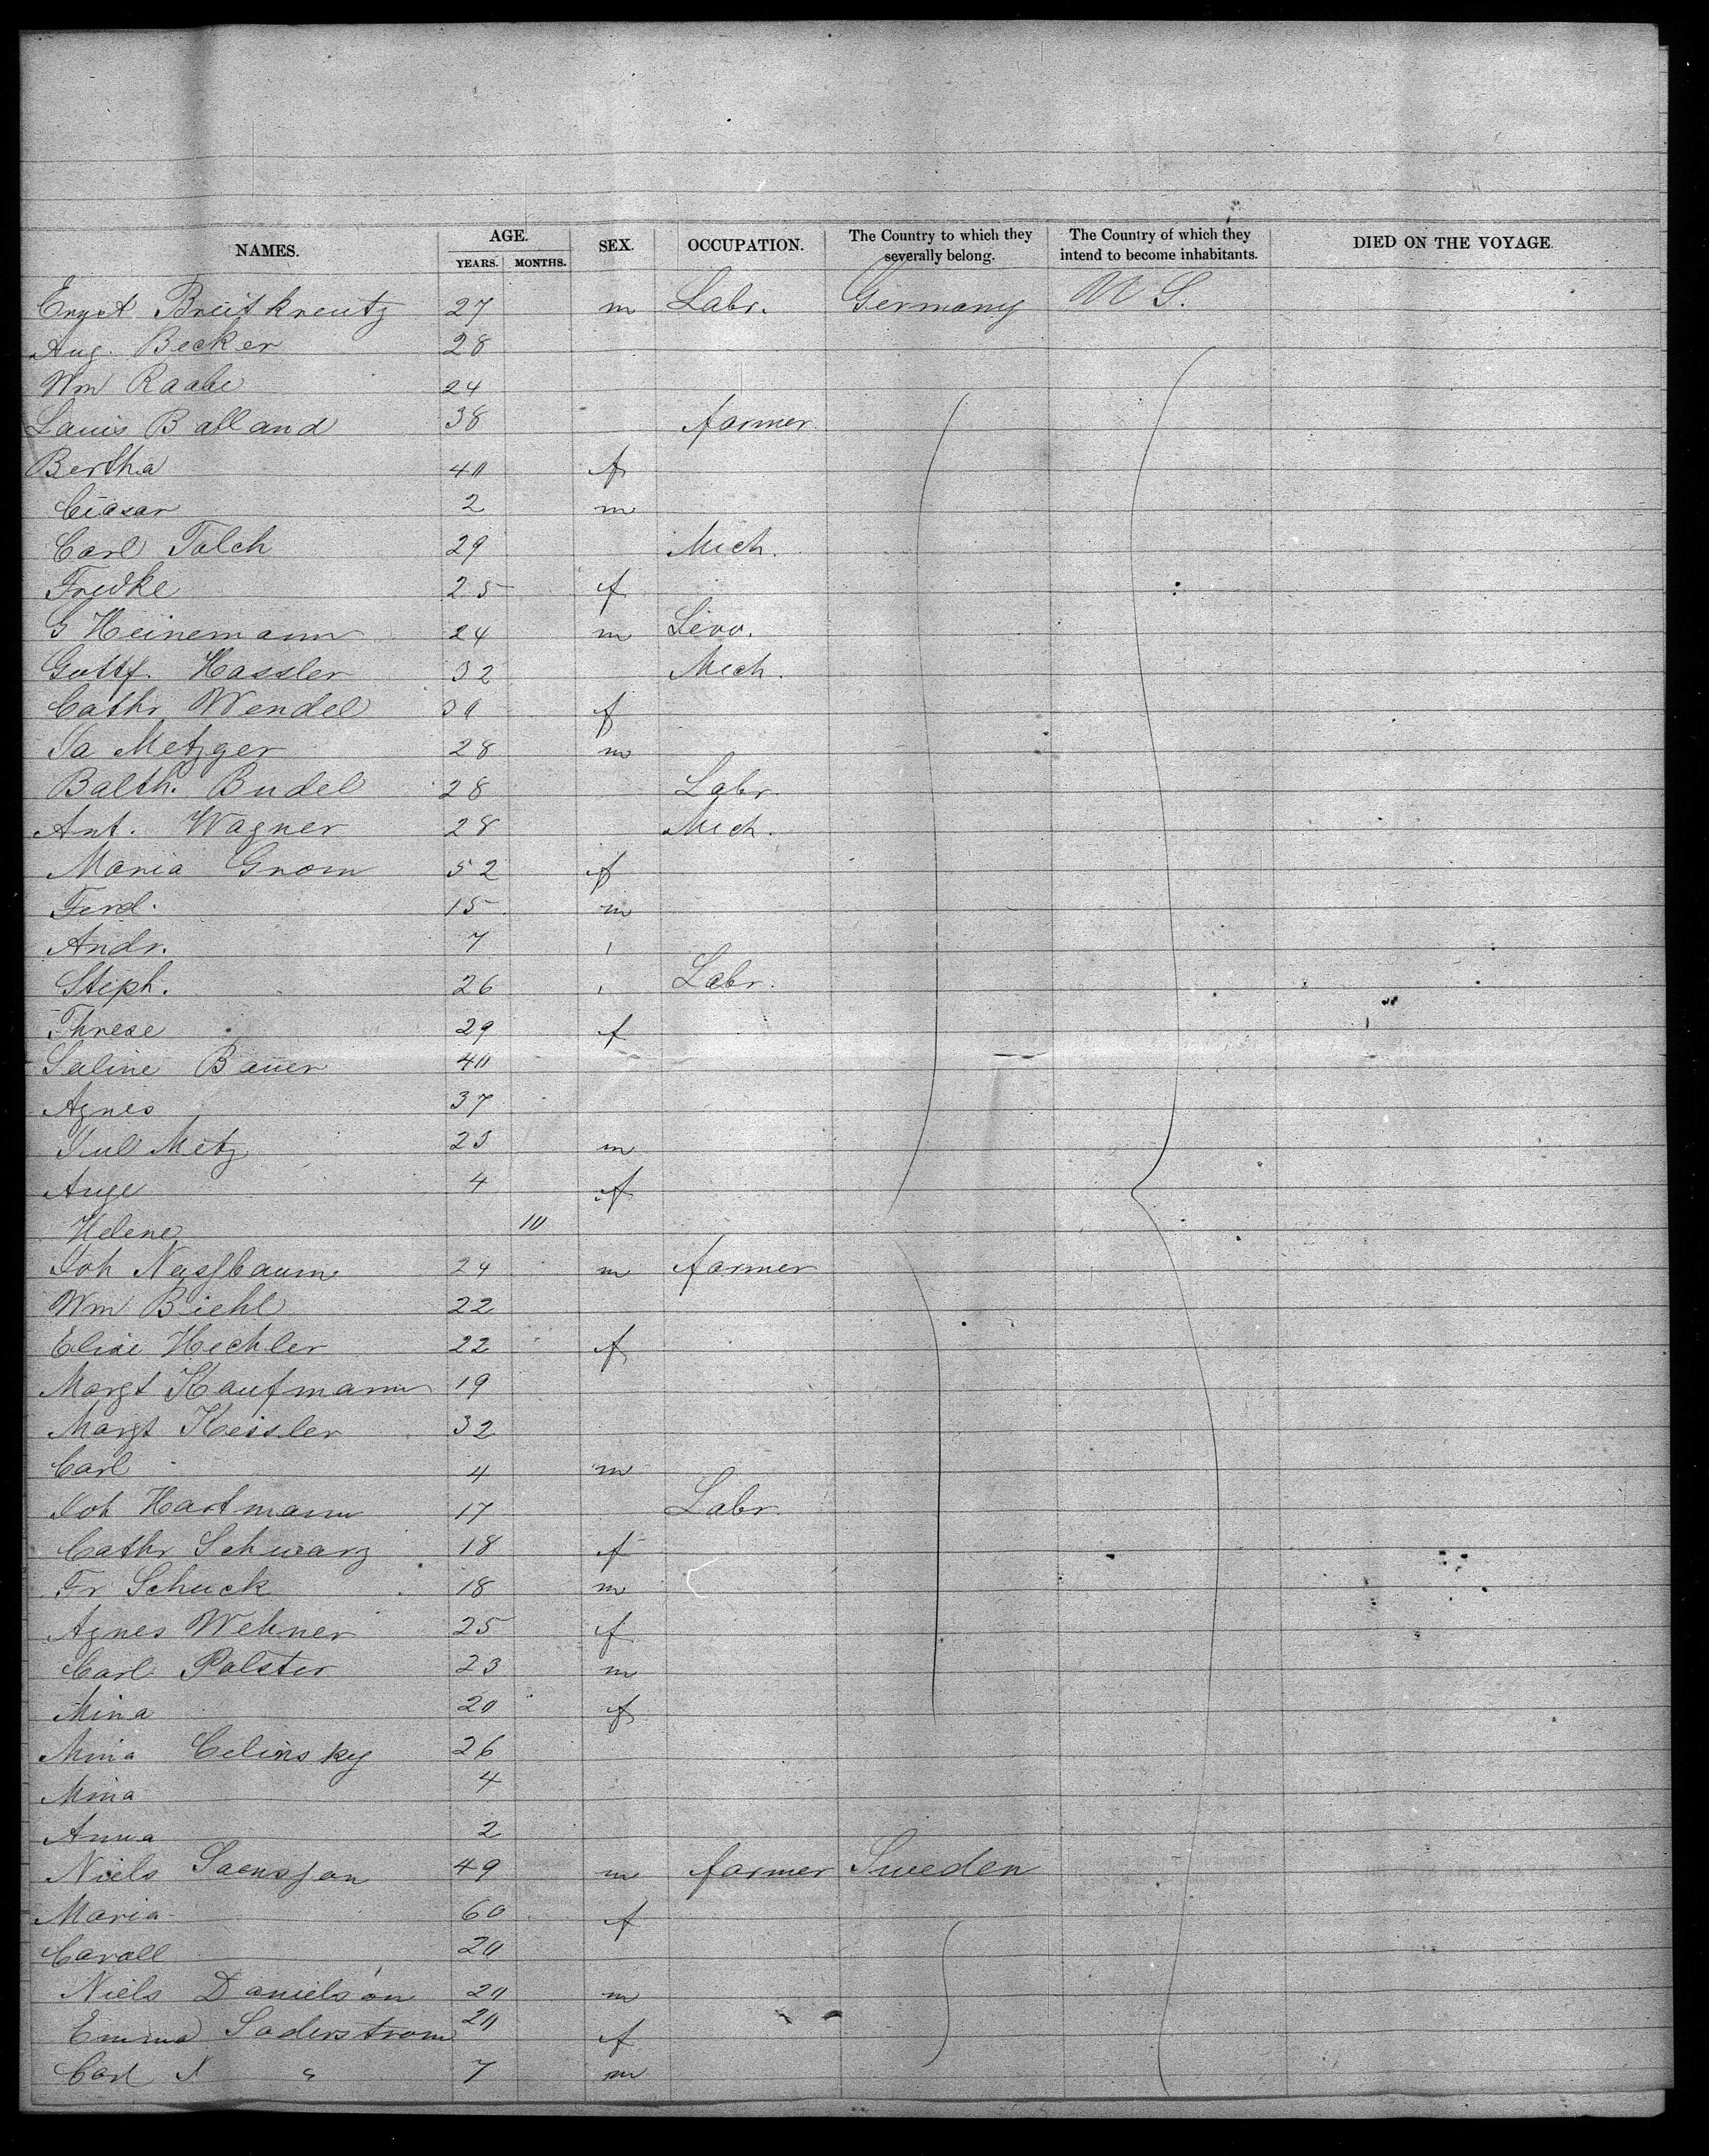 NAMES. AGE. YEARS. MONTHS. SEX. OCCUPATION. The Country to which they severally belong. The Country of which they intend to become inhabitants. DIED ON THE VOYAGE.
Breitkreutz 27 m Labr. Germany U S.
Aug. Becker 28
Wm Raabe 24
Louis Balland 38 farmer
Bertha 40 f
Cäsar 2 m
Carl Tolch 29 Mech.
Fredke 25 f
G Heinemann 24 m
Gottf. Hassler 32 Mech.
Cathr Wendel 30 f
Ja Metzger 28 m
Balth. Budel 28 Labr.
Ant. Wagner 28 Mech.
Maria Gnom 52 f
Ferd. 15 m
Andr. 7 "
Steph. 26 " Labr.
Threse 29 f
Saline Bauer 40
Agnes 37
Jul Metz 23 m
Auge 4 f
Helene 10
Joh Nussbaum 24 m farmer
Wm Biehl 22
Elise Hechler 22 f
Margt Kaufmann 19
Margt Keissler 32
Carl 4 m
Joh Hartmann 17 Labr.
Cathr Schwarz 18 f
Fr Schuck 18 m
Agnes Wehner 25 f
Carl Polster 23 m
Mina 20 f
Mina Celinsky 26
Mina 4
Anna 2
Niels 49 m farmer Sweden
Maria 60 f
Caroll 20
Niels Danielson 20 m
Emma Soderstrom 20 f
Carl " 7 m